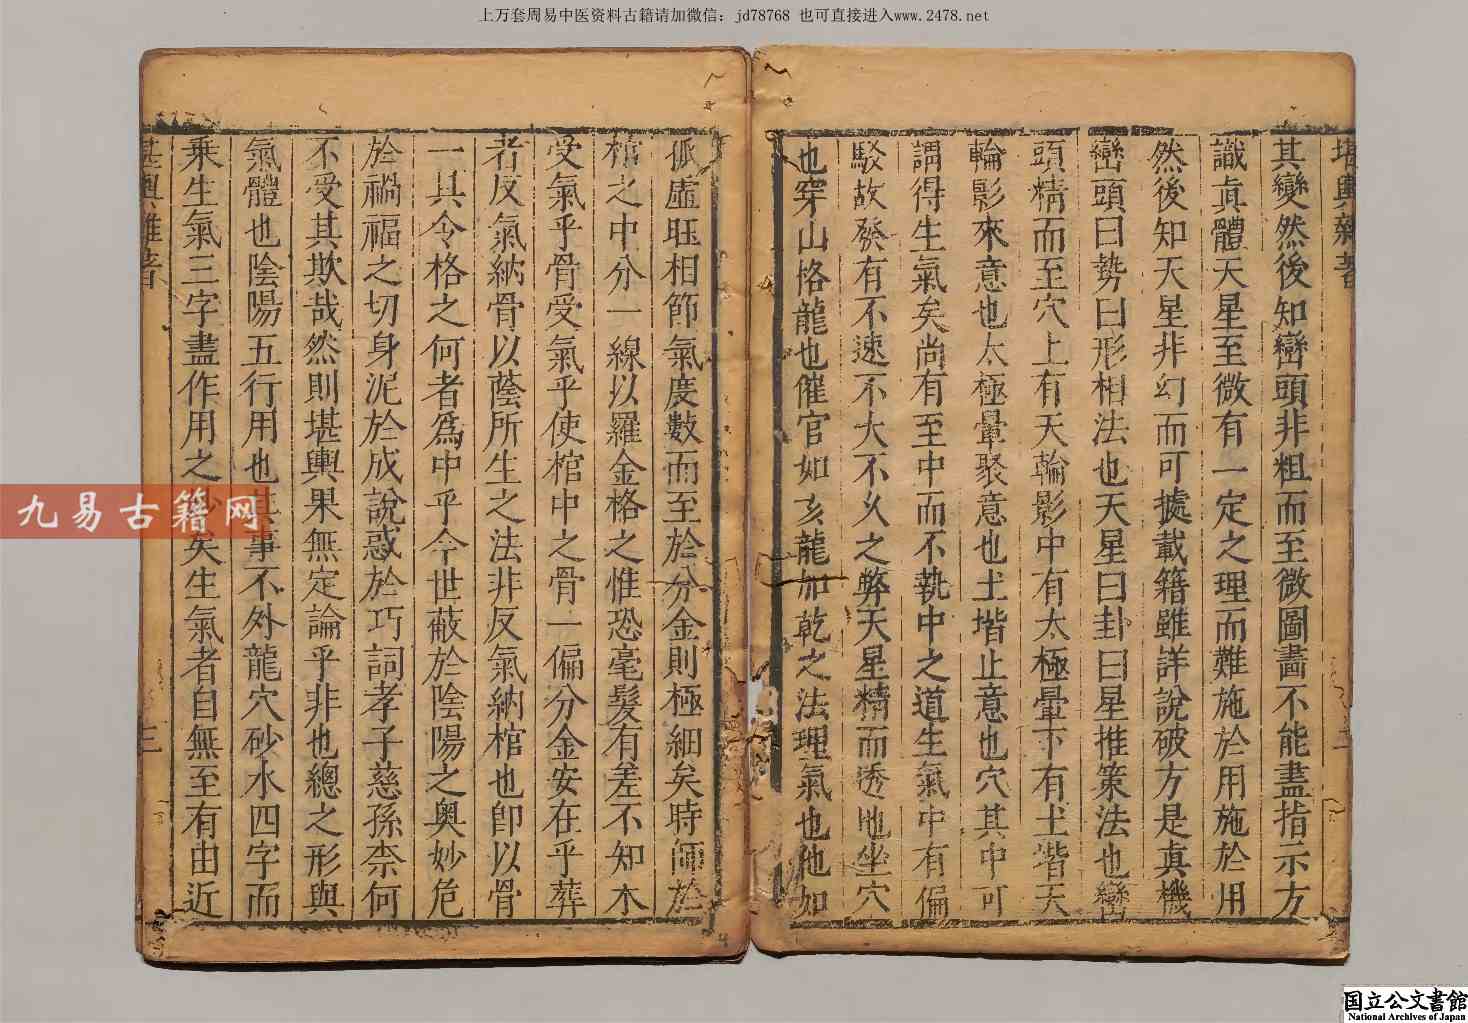 上万套周易中医资料古籍请加微信：jd78768 也可直接进入www.2478.net
堪輿雜著
二
其變然後知巒頭非粗而至微圖畵不能盡指示方
識眞體天星至微有一定之理而難施於用施於用
然後知天星非幻而可據載籍雖詳說破方是眞機
巒頭曰勢曰形相法也天星曰卦曰星推策法也巒
頭精而至穴上有天輪影中有太極暈下有土堦天
輪影來意也太極暈聚意也土堦止意也穴其中可
謂得生氣矣尚有至中而不執中之道生氣中有偏
駁故發有不速不大不久之弊天星精而透地坐穴
也穿山格龍也催官如亥龍加乾之法理氣也他如
孤虛旺相節氣度數而至於分金則極細矣時師於
棺之中分一線以羅金格之惟恐毫髮有差不知木
受氣乎骨受氣乎使棺中之骨一偏分金安在乎葬
者反氣納骨以蔭所生之法非反氣納棺也卽以骨
一具令格之何者爲中乎今世蔽於陰陽之奥妙危
於禍福之切身泥於成說惑於巧詞孝子慈孫柰何
不受其欺哉然則堪輿果無定論乎非也總之形與
氣體也陰陽五行用也其事不外龍穴砂水四字而
乘生氣三字盡作用之妙矣生氣者自無至有由近
堪輿雜著
三
九易古籍网
国立公文書館
National Archives of Japan